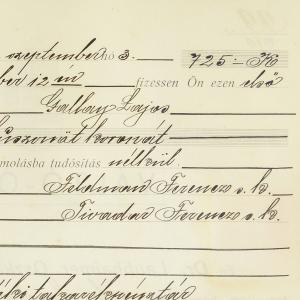 szeptember hó 3. 725.- K
ber 12 én fizessen Ön ezen első
Gallay Lajos
huszonöt koronát
molásba tudósítás nélkül.
Feldman Ferencz s. k.
Tivadar Ferencz s. k.
takarékpénztár